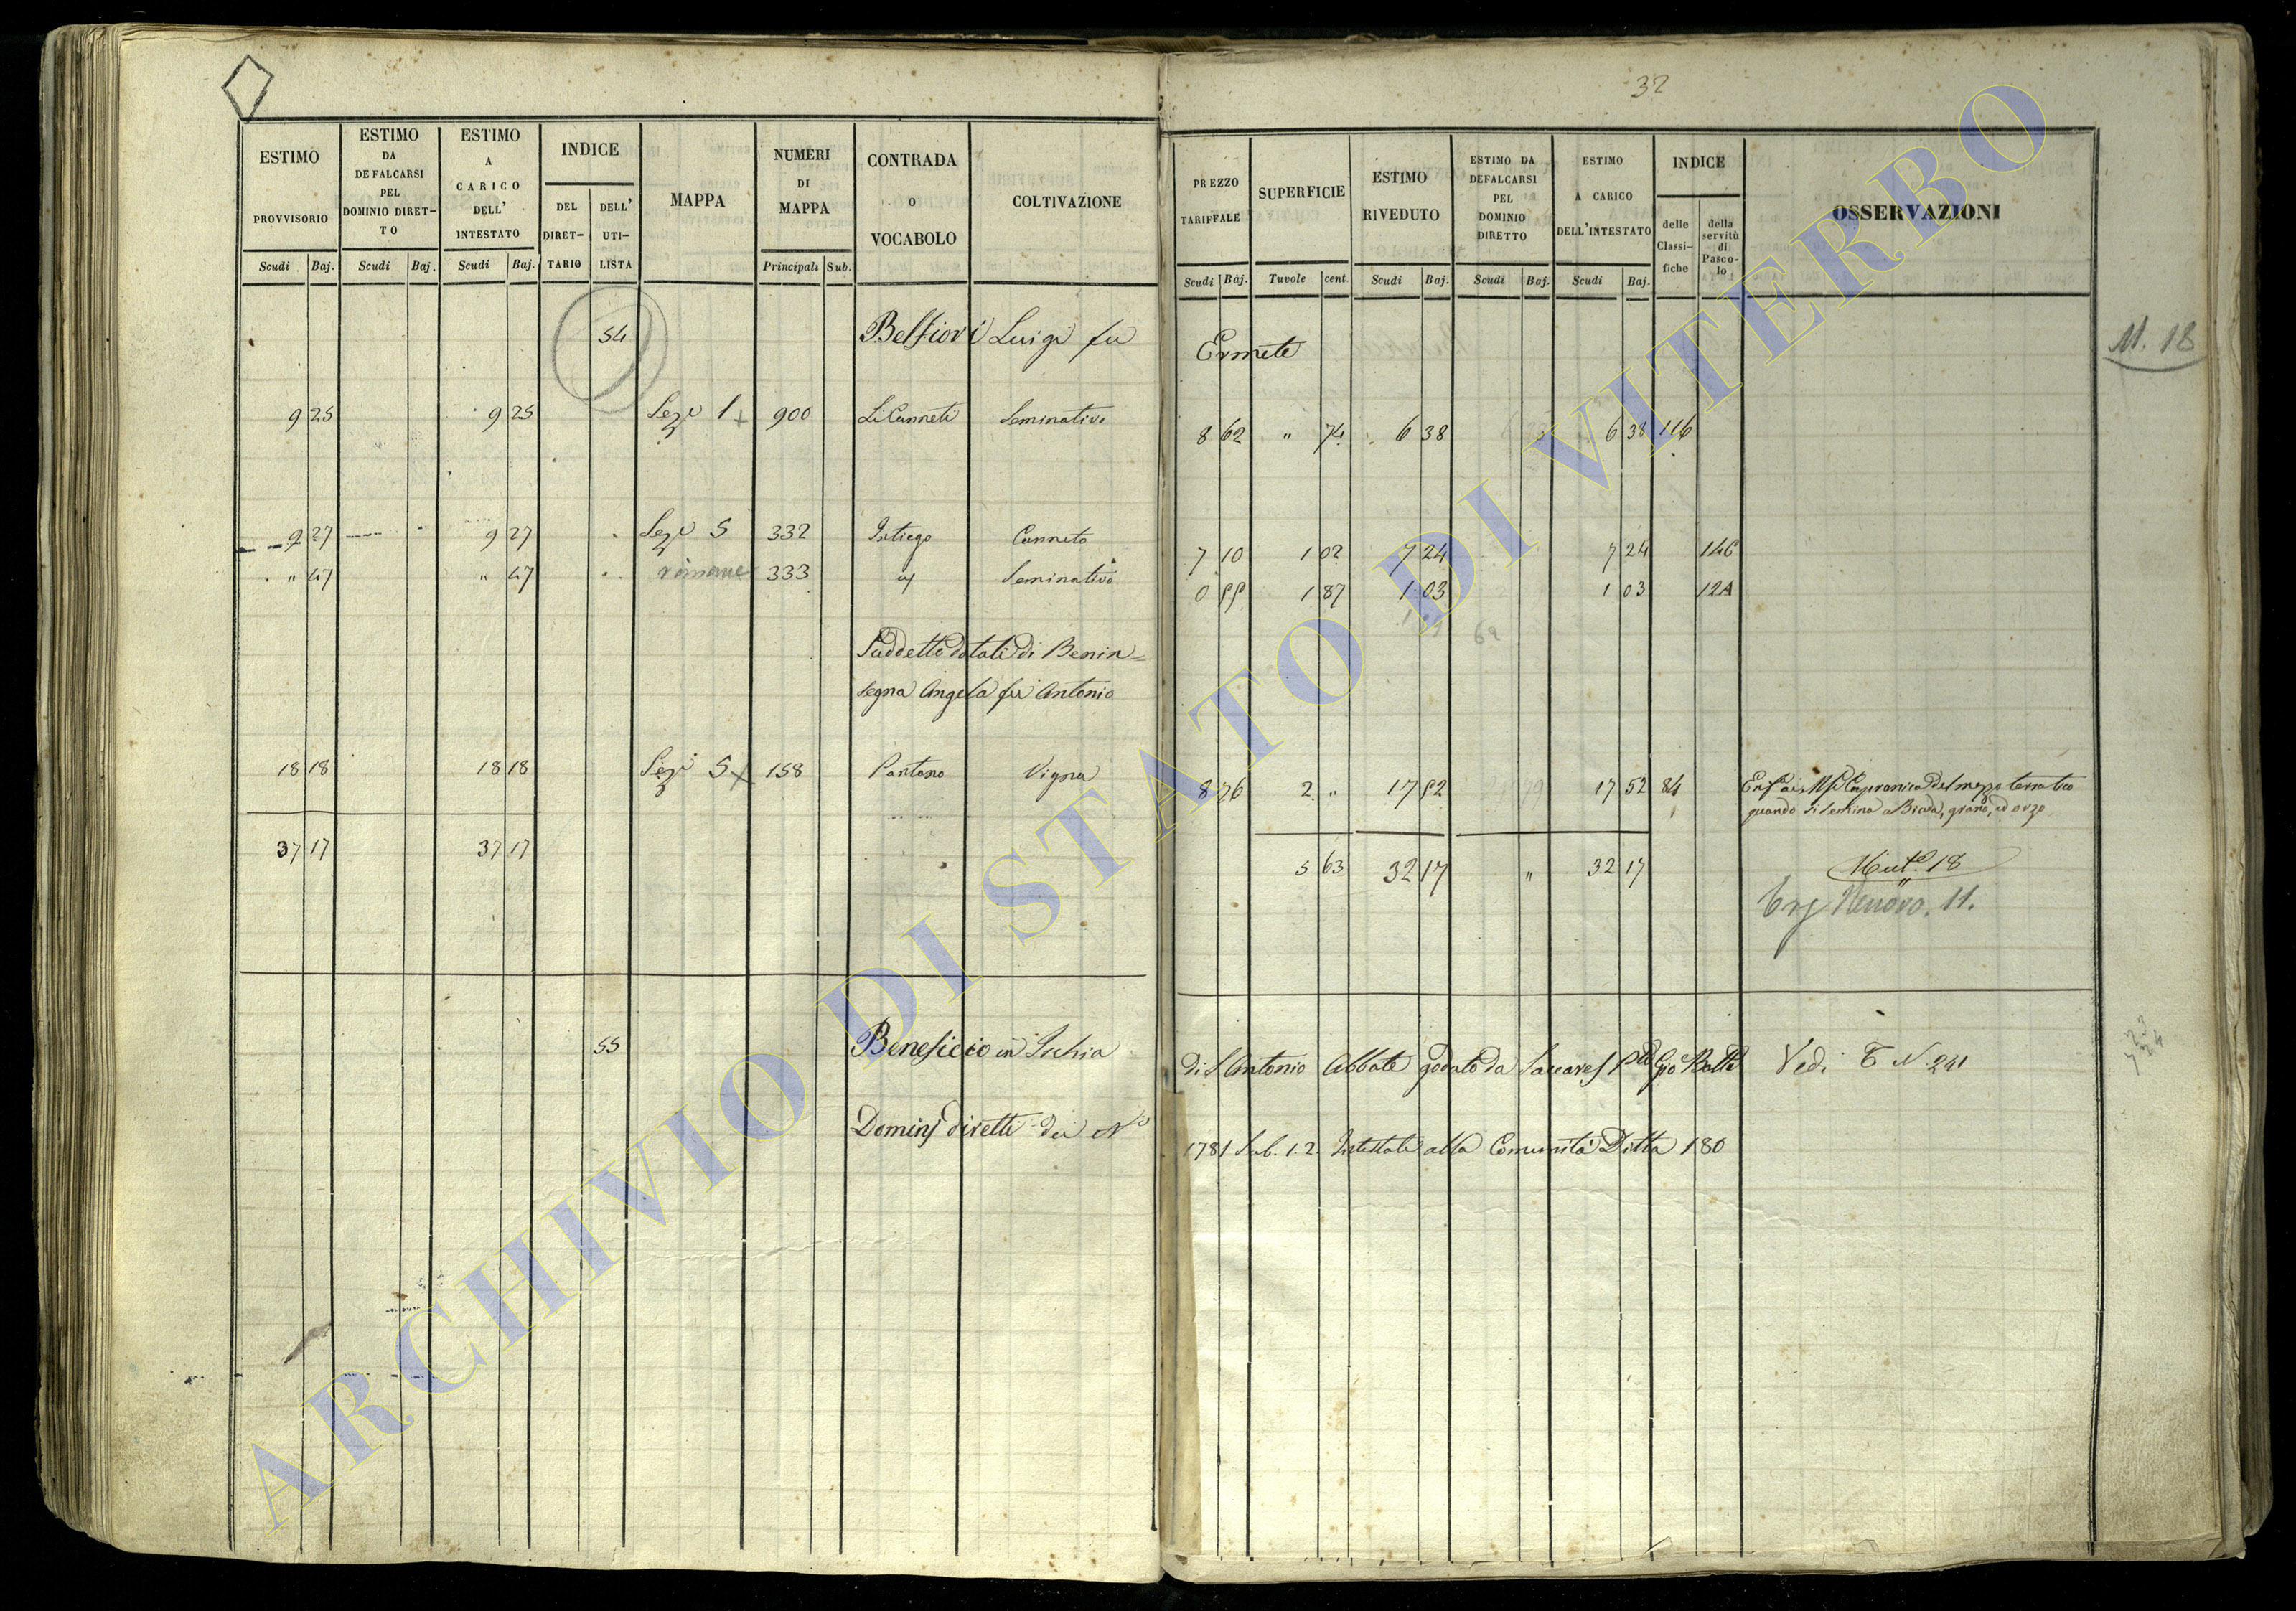 32
ESTIMO PROVVISORIO
ESTIMO DA DEFALCARSI PEL DOMINIO DIRETTO
ESTIMO A CARICO DELL' INTESTATO
INDICE
DEL DIRETTARIO
DELL' UTILISTA
MAPPA
NUMERI DI MAPPA
CONTRADA O VOCABOLO
COLTIVAZIONE
PREZZO TARIFFALE
SUPERFICIE
ESTIMO RIVEDUTO
ESTIMO DA DEFALCARSI PEL DOMINIO DIRETTO
ESTIMO A CARICO DELL'INTESTATO
INDICE
delle Classifiche
della servitù di Pascolo
OSSERVAZIONI
Scudi Baj. Scudi Baj. Scudi Baj. Principali Sub. Scudi Baj. Tavole cent Scudi Baj. Scudi Baj. Scudi Baj.
54 Belfiori Luigi fu Ermete
M. 18
9 25 9 25 Sezе 1 900 Li Canneti Seminativo 8 62 " 74 6 38 6 38 116
9 27 9 27 Seze 5 332 Intiego Canneto 7 10 1 02 7 24 7 24 146
" 47 " 47 rimane 333 Seminativo 1 87 1 03 1 03 12A
Suddetto dotali di Benin=
segna Angela fu Antonio
18 18 18 18 Seze 5 158 Pantano Vigna 8 76 2 " 17 52 17 52 84
quando si semina a Biada, grano, ed orzo
37 17 37 17 5 63 32 17 " 32 17
Mut. 18
Nuovo. 11.
55 Beneficio in Ischia di S Antonio Abbate goduto da Gio Batta Vedi N. 241
Dominj diretti dei Ni 1781 Sub. 1.2. Intestati alla Comunità Ditta 180
ARCHIVIO DI STATO DI VITERBO